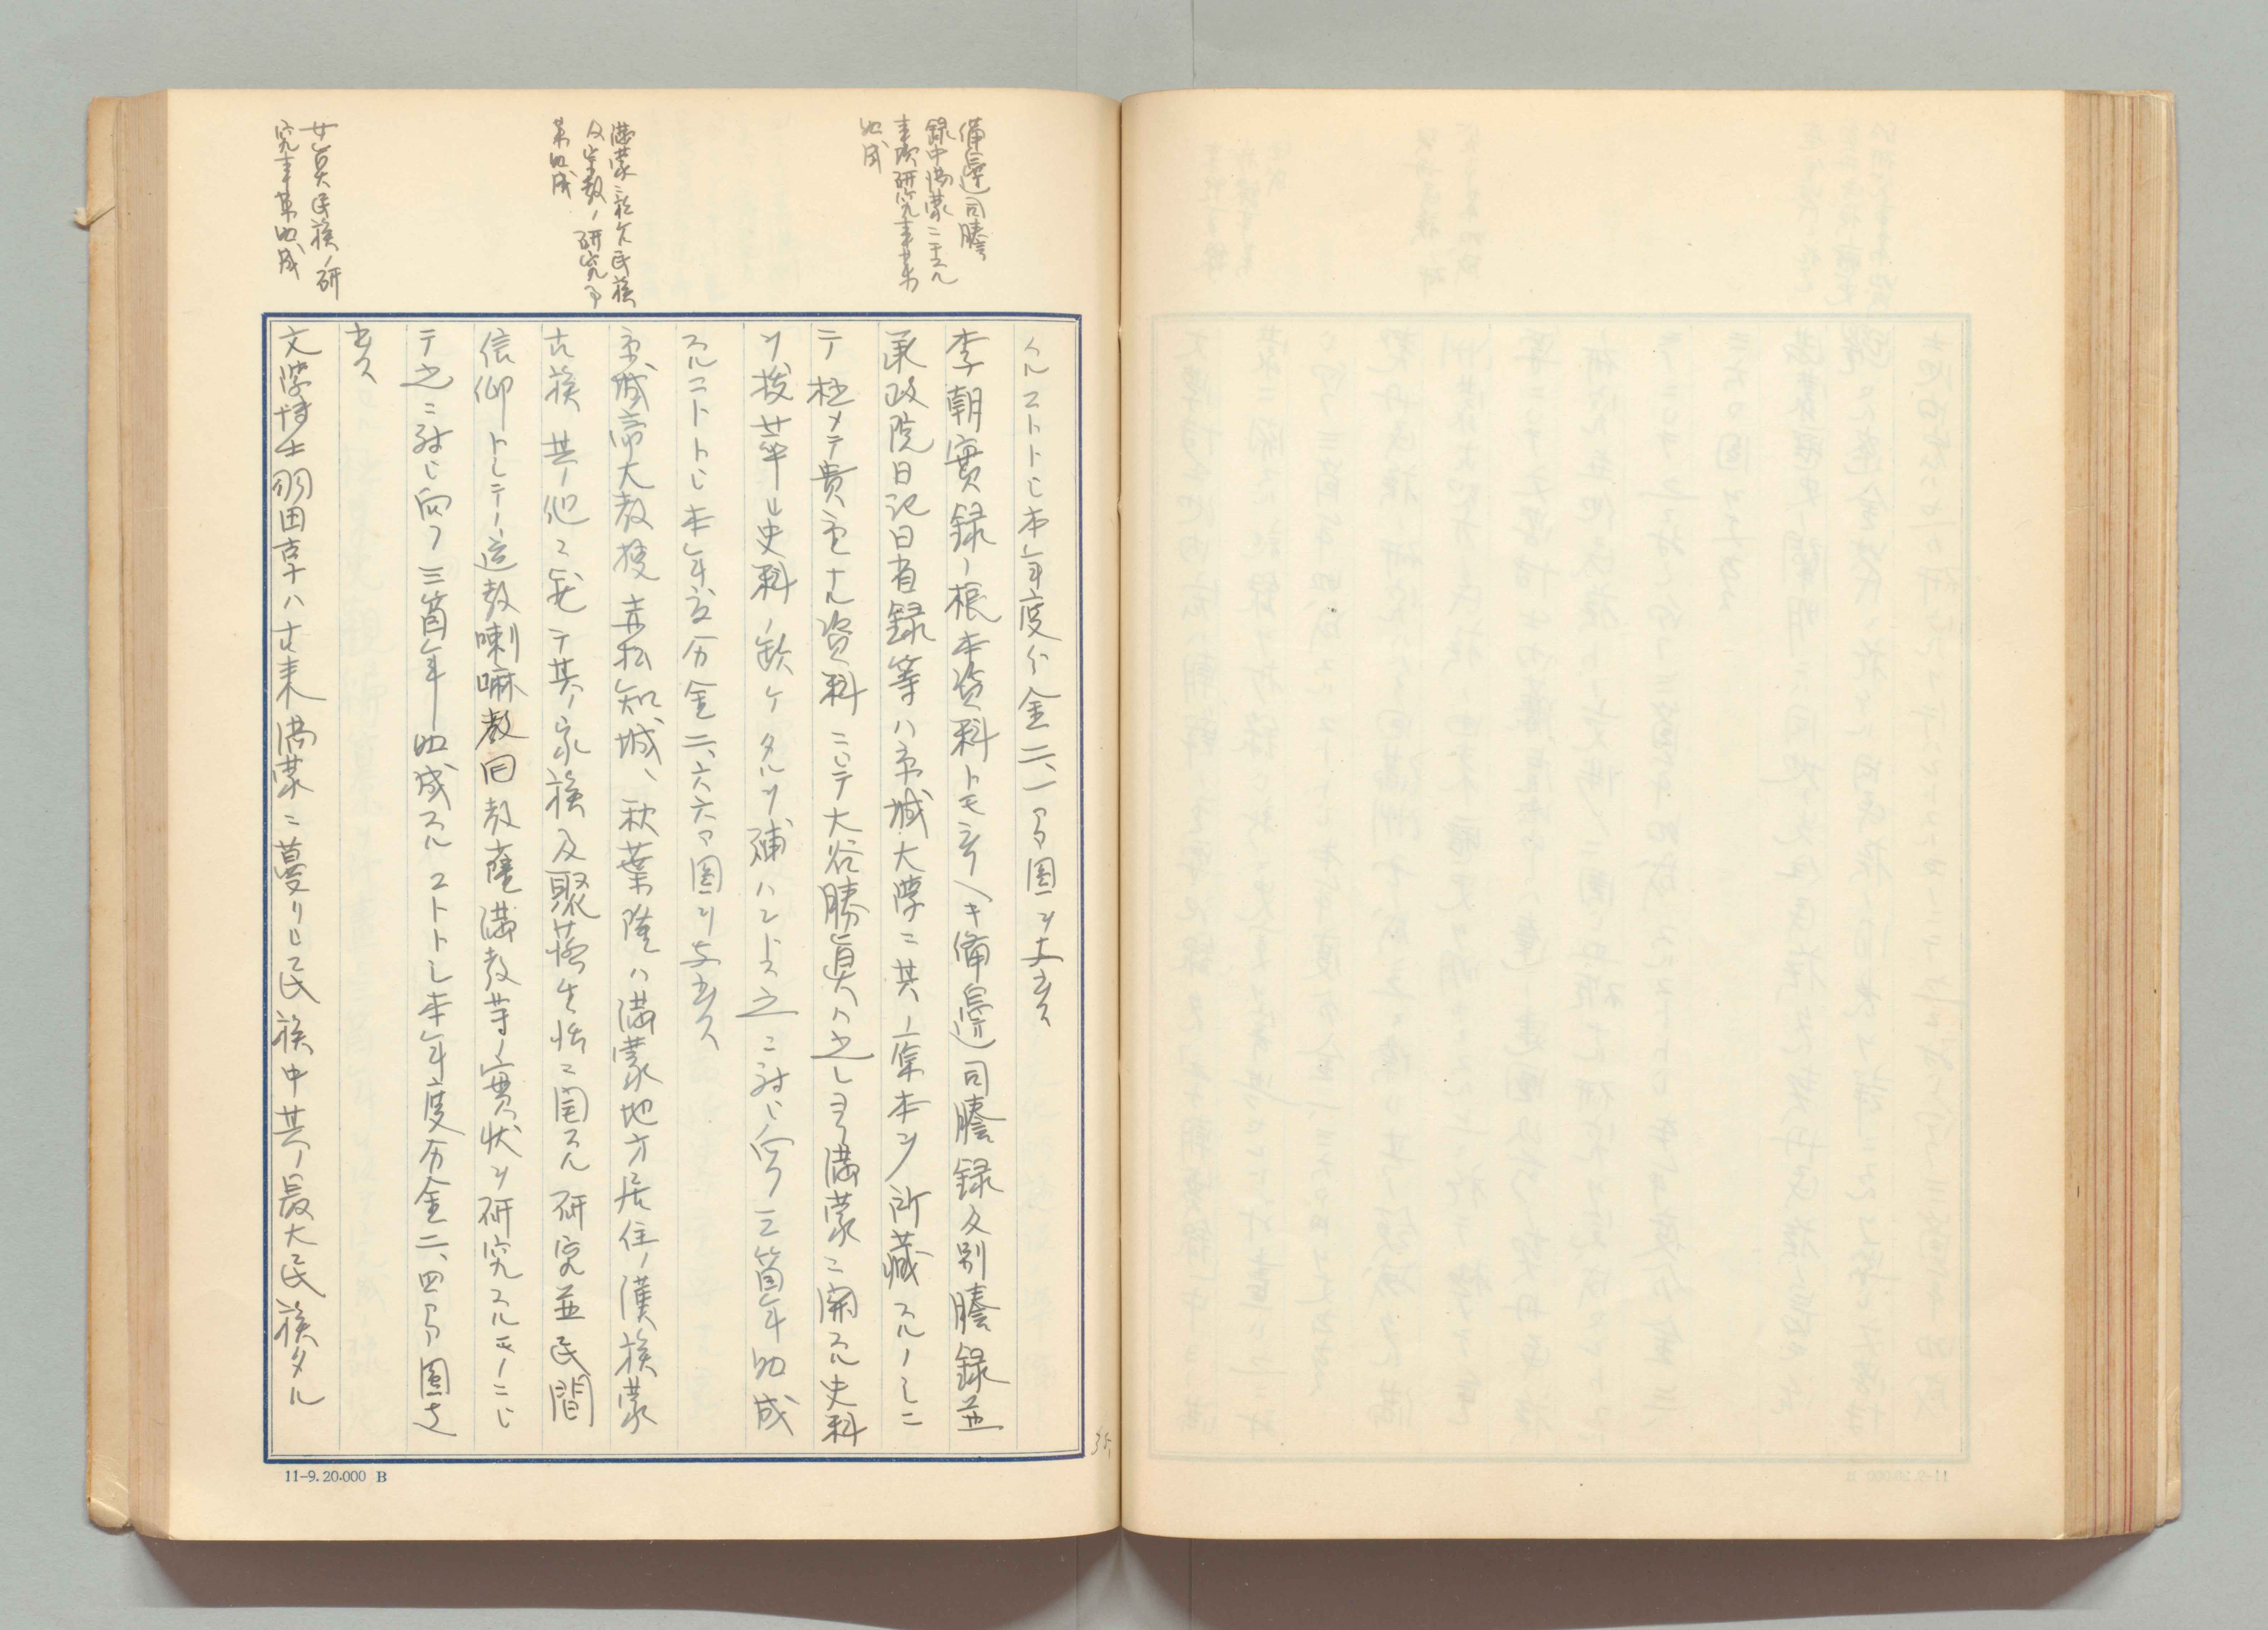 備邊司謄
録中満蒙ニ干スル
事項研究事業
助成
満蒙ニ於ケル民族
及宗教ノ研究事
業助成
女真民族ノ研
究事業助成
クルコトトシ本年度分金二、一〇〇圓ヲ支出ス
李朝實録ノ根本資料トモ云フヘキ備邊司謄録及別謄録並
承政院日記日省録等ハ京城大學ニ其ノ稟本ヲ所藏スルノミニ
テ極メテ貴重ナル資料ニシテ大谷勝眞ハ之レヨリ満蒙ニ関スル史料
ヲ抜萃シ史料ノ缺ケタルヲ補ハントス之ニ対シ向フ三箇年助成
スルコトトシ本年度分金二、六六〇圓ヲ支出ス
京城帝大教授赤松知城、秋葉隆ハ満蒙地方居住ノ漢族蒙
古族其ノ他ニ就テ其ノ家族及聚落生活ニ関スル研究並民間
信仰トシテノ道教喇嘛教回教薩満教等ノ實状ヲ研究スルモノニシ
テ之ニ対シ向フ三箇年助成スルコトトシ本年度分金二、四〇〇圓支
出ス
文學博士羽田亨ハ古来満蒙ニ蔓リシ民族中其ノ最大民族タル
11-9. 20.000 B